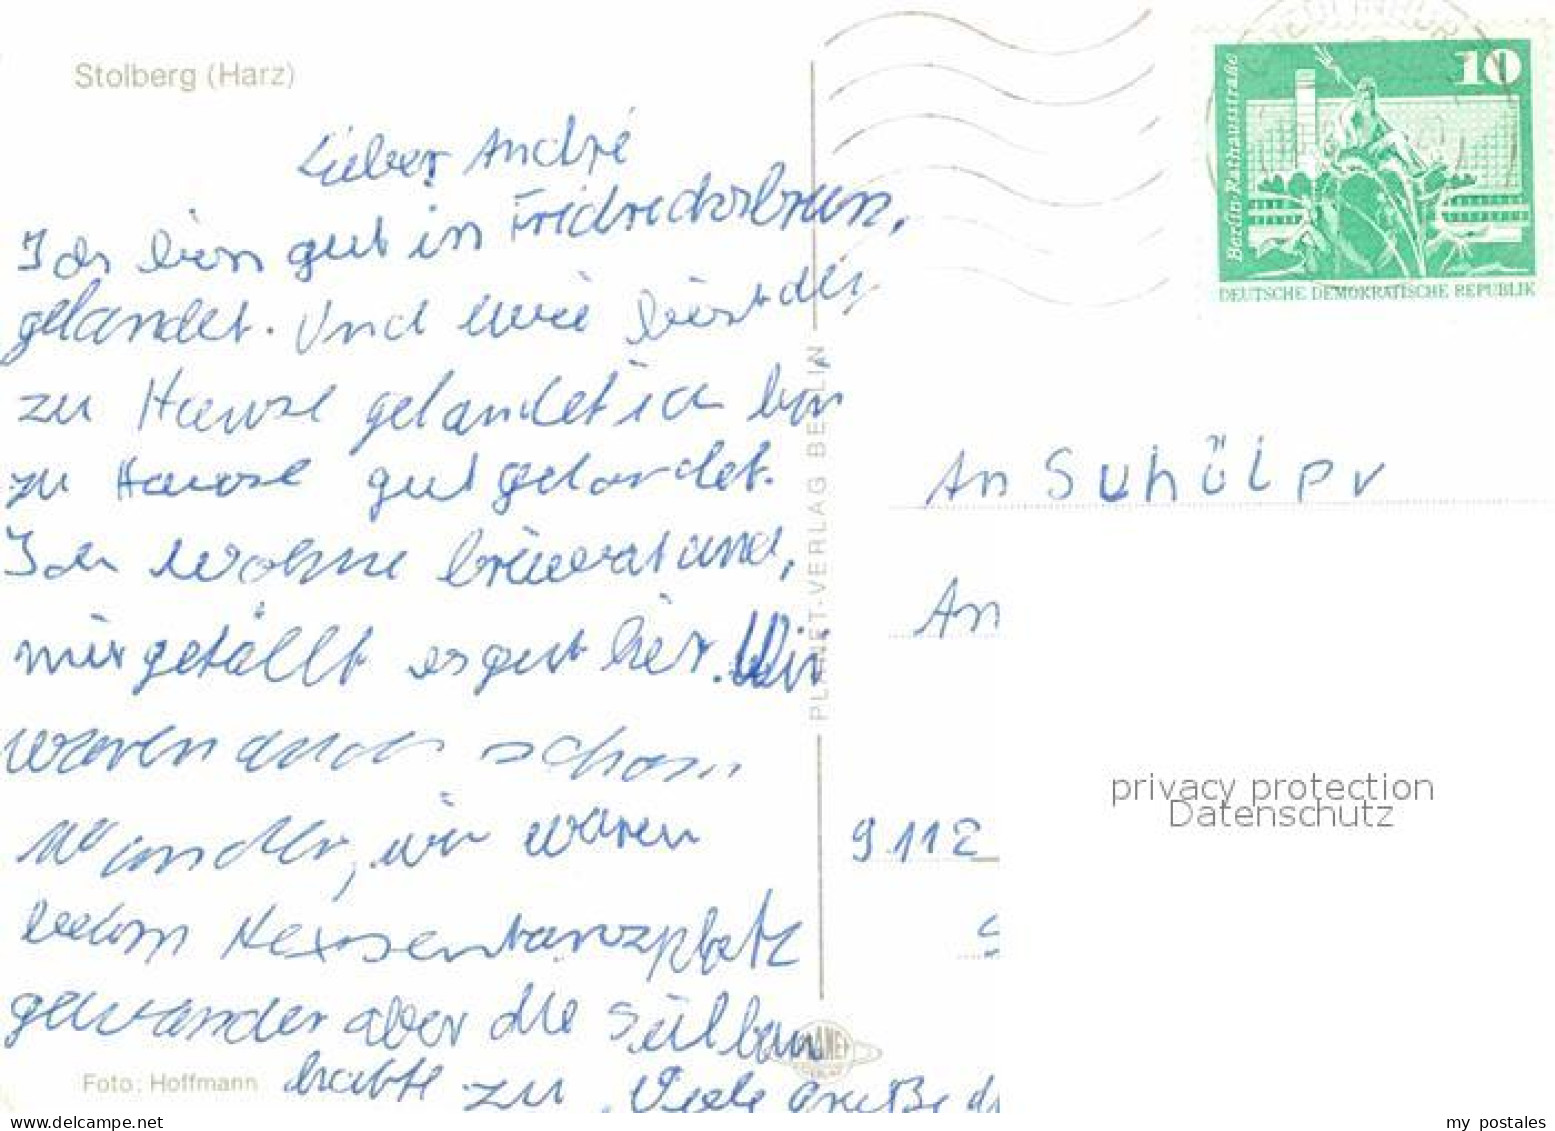 Stolberg (Harz)
Lieber André
Ich bin gut in Fridrichsbrun,
gelandet. Und wie bist du,
zu Hause gelandet ich bin
zu Hause gut gelandet.
Ich wohne
mir gefällt es gut hier. Wir
waren auch schon
wander, wir waren
beim Hexsentanzplatz
gewander aber die Seilban
hatte zu. Viele Grüße
Foto: Hoffmann
PLANET-VERLAG BERLIN
PLANET
10
Berlin, Rathausstraße
DEUTSCHE DEMOKRATISCHE REPUBLIK
An Suhülpv
An
9112
privacy protection
Datenschutz
www.delcampe.net
my_postales